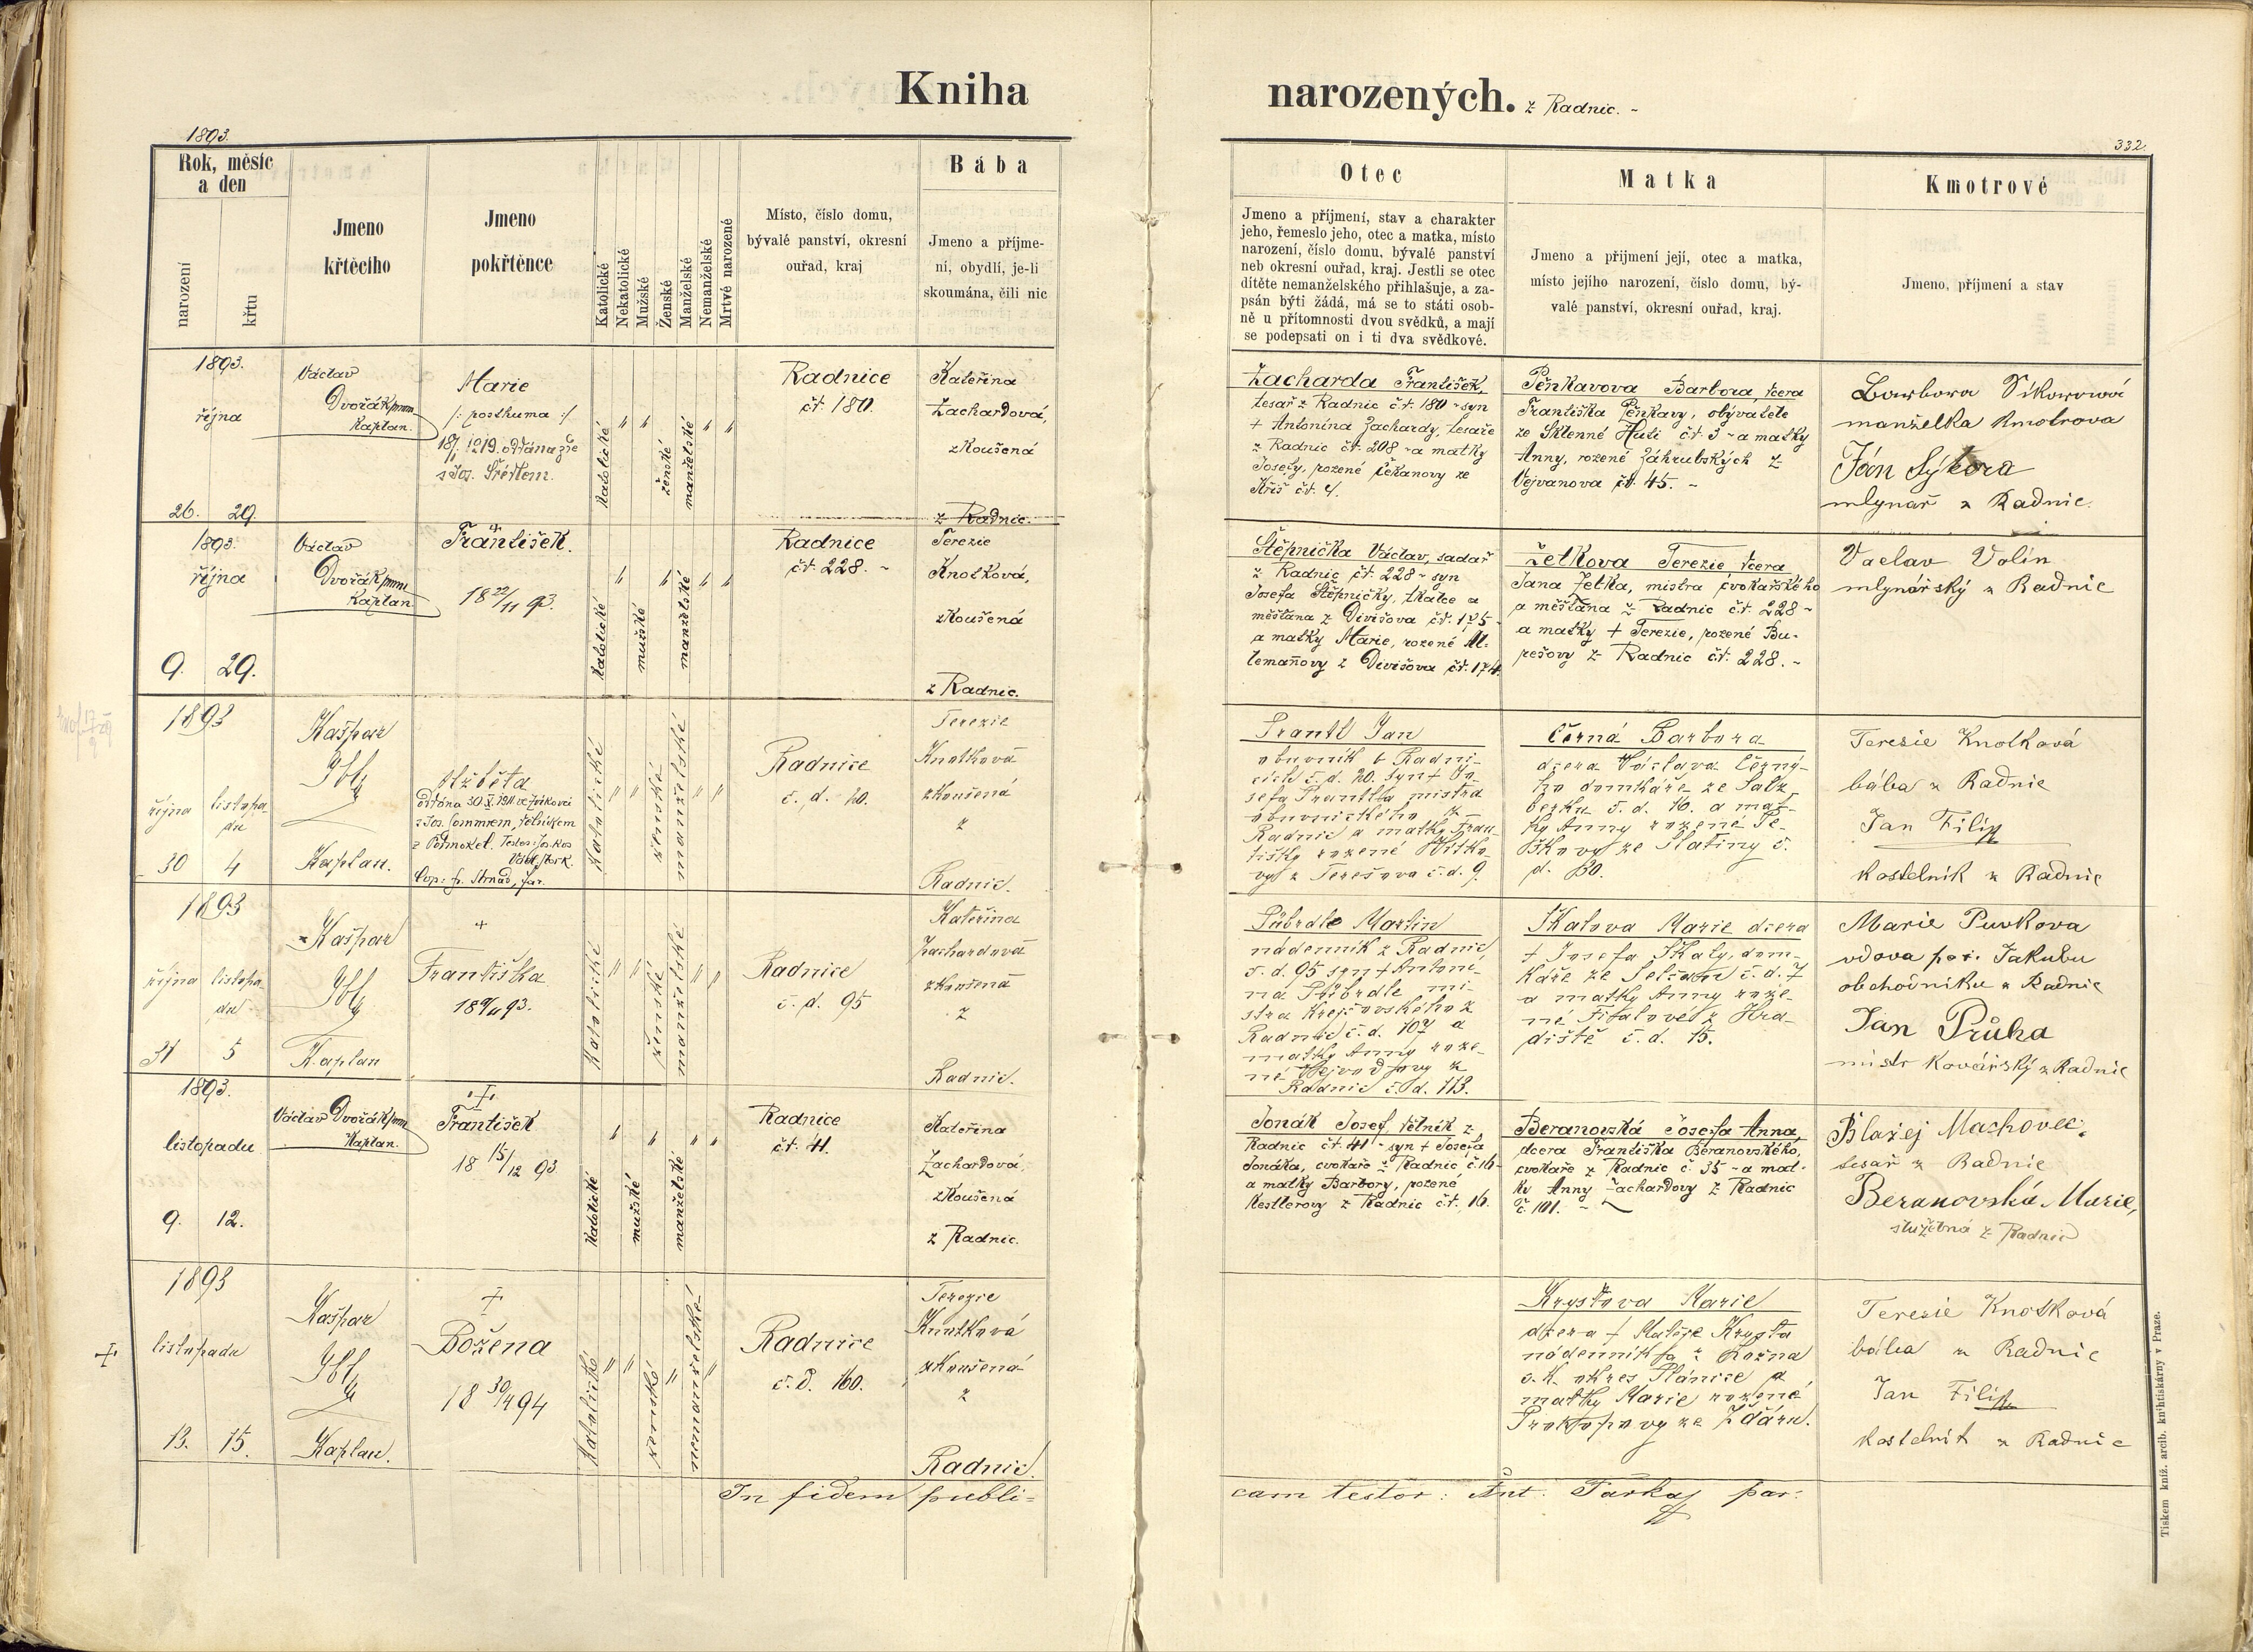 Kniha narozených. z Radnic. -
1893.
332.
Rok, měsíc
a den
narození
křtu
Jmeno
křtěcího
Jmeno
pokřtěnce
Katolické
Nekatolické
Mužské
Ženské
Manželské
Nemanželské
Mrtvé narozené
Místo, číslo domu,
bývalé panství, okresní
ouřad, kraj
Bába
Jmeno a příjme-
ní, obydlí, je-li
skoumána, čili nic
Otec
Jmeno a příjmení, stav a charakter
jeho, řemeslo jeho, otec a matka, místo
narození, číslo domu, bývalé panství
neb okresní ouřad, kraj. Jestli se otec
dítěte nemanželského přihlašuje, a za-
psán býti žádá, má se to státi osob-
ně u přítomnosti dvou svědků, a mají
se podepsati on i ti dva svědkové.
Matka
Jmeno a přijmení její, otec a matka,
místo jejího narození, číslo domu, bý-
valé panství, okresní ouřad, kraj.
Kmotrové
Jmeno, příjmení a stav
1893.
října
26. 29.
Václav
Dvořák
Kaplan.
Marie
/: posthuma :/
s Jos.
katolické
" "
ženské
manželské
" "
Radnice
čt. 180.
Kateřina
Zachardová,
zkoušená
z Radnic.
Zacharda František,
tesař z Radnic čt. 180 - syn
+ Antonína Zachardy, tesaře
z Radnic čt. 208 - a matky
Josefy, rozené Čekanovy ze
Kříš čt. 4.
Pěnkavova Barbora, dcera
Františka Pěnkavy, obývatele
ze Sklenné Huti čt. 3 - a matky
Anny, rozené Záhrubských z
Vejvanova čt. 45. -
Barbora Sikorová
manželka Kmotrova
Ján Sýkora
mlynař z Radnic.
1893.
října
9. 29.
Václav
Dvořák
Kaplan
+
František.
18 22/11 93.
katolické
"
mužské
"
manželské
" "
Radnice
čt. 228. -
Terezie
Knotková,
zkoušená
z Radnic.
Štěpnička Václav, sadař
z Radnic čt. 228 - syn
Josefa Štěpničky, tkalce a
měšťana z Divišova čt. 175 -
a matky Marie, rozené Al-
temanovy z Divišova čt. 174.
Žetkova Terezie dcera
Jana Žetka, mistra cvokařského
a měšťana z Radnic čt. 228 -
a matky + Terezie, rozené Bu-
rešovy z Radnic čt. 228. -
Vaclav Volín
mlynářský z Radnic
1893
října listopa-
du
30 4
Kašpar
Kaplan.
Alžběta
katolické
" "
ženské
manželské
" "
Radnice
č. d. 20.
Terezie
Knotková
zkoušená
z
Radnic.
Prantl Jan
obuvník v Radni-
cích č. d. 20. syn + Jo-
sefa Prantla mistra
obuvnického z
Radnic a matky Fran-
tišky rozené Vítko-
vy z Terešova č. d. 9.
Černá Barbora
dcera Václava Černý-
ho domkáře ze Salz-
berku č. d. 16. a mat-
ky Anny rozené Pe-
škovy ze Slatiny č.
d. 30.
Terezie Knotková
bába z Radnic
Jan Filip
kostelník z Radnic
1893
října listopa
du
31 5
Kašpar
Kaplan
+
Františka
18 9/11 93.
katolické
" "
ženské
manželské
" "
Radnice
č. d. 95
Kateřina
Zachardová
zkoušená
z
Radnic.
Půbrdle Martin
nádenník z Radnic
č. d. 95 syn + Antoní-
na Půbrdle mi-
stra krejčovského z
Radnic č. d. 107 a
matky Anny roze-
né Vejvodovy z
Radnic č. d. 113.
Škalova Marie dcera
+ Josefa Škaly, dom-
káře ze Selčan č. d. 7
a matky Anny roze-
né Fialové z Hra-
diště č. d. 15.
Marie Purkova
vdova po Jakubu
obchodníku z Radnic
Jan Průha
mistr kovářský z Radnic
1893.
listopadu
9. 12.
Václav Dvořák
Kaplan.
+
František
18 15/12 93
katolické
"
mužské
"
manželské
" "
Radnice
čt. 41.
Kateřina
Zachardová,
zkoušená
z Radnic.
Jonák Josef, dělník z
Radnic čt. 41 - syn + Josefa
Jonáka, cvokaře z Radnic č. 16 -
a matky Barbory, rozené
Kestlerovy z Radnic čt. 16.
Beranovská Josefa Anna,
dcera Františka Beranovského,
cvokaře z Radnic č. 35 - a mat-
ky Anny Zachardovy z Radnic
č. 101. -
Blažej Machovec,
tesař z Radnic
Beranovská Marie,
služebná z Radnic
1893
listopadu
13. 15.
+
Kašpar
Kaplan.
+
Božena
18 30/4 94
katolické
" "
ženské
"
nemanželské
"
Radnice
č. d. 160.
Terezie
Knotková
zkoušená
z
Radnic.
Krystova Marie
dcera + Matěje Krysta
nádenníka z Kozna
č. k. okres Plánice a
matky Marie rozené
Prokopovy ze Ždáru.
Terezie Knotková
bába z Radnic
Jan Filip
kostelník z Radnic
In fidem publi=
cam testor: Ant. par.
Tiskem kníž. arcib. knihtiskárny v Praze.